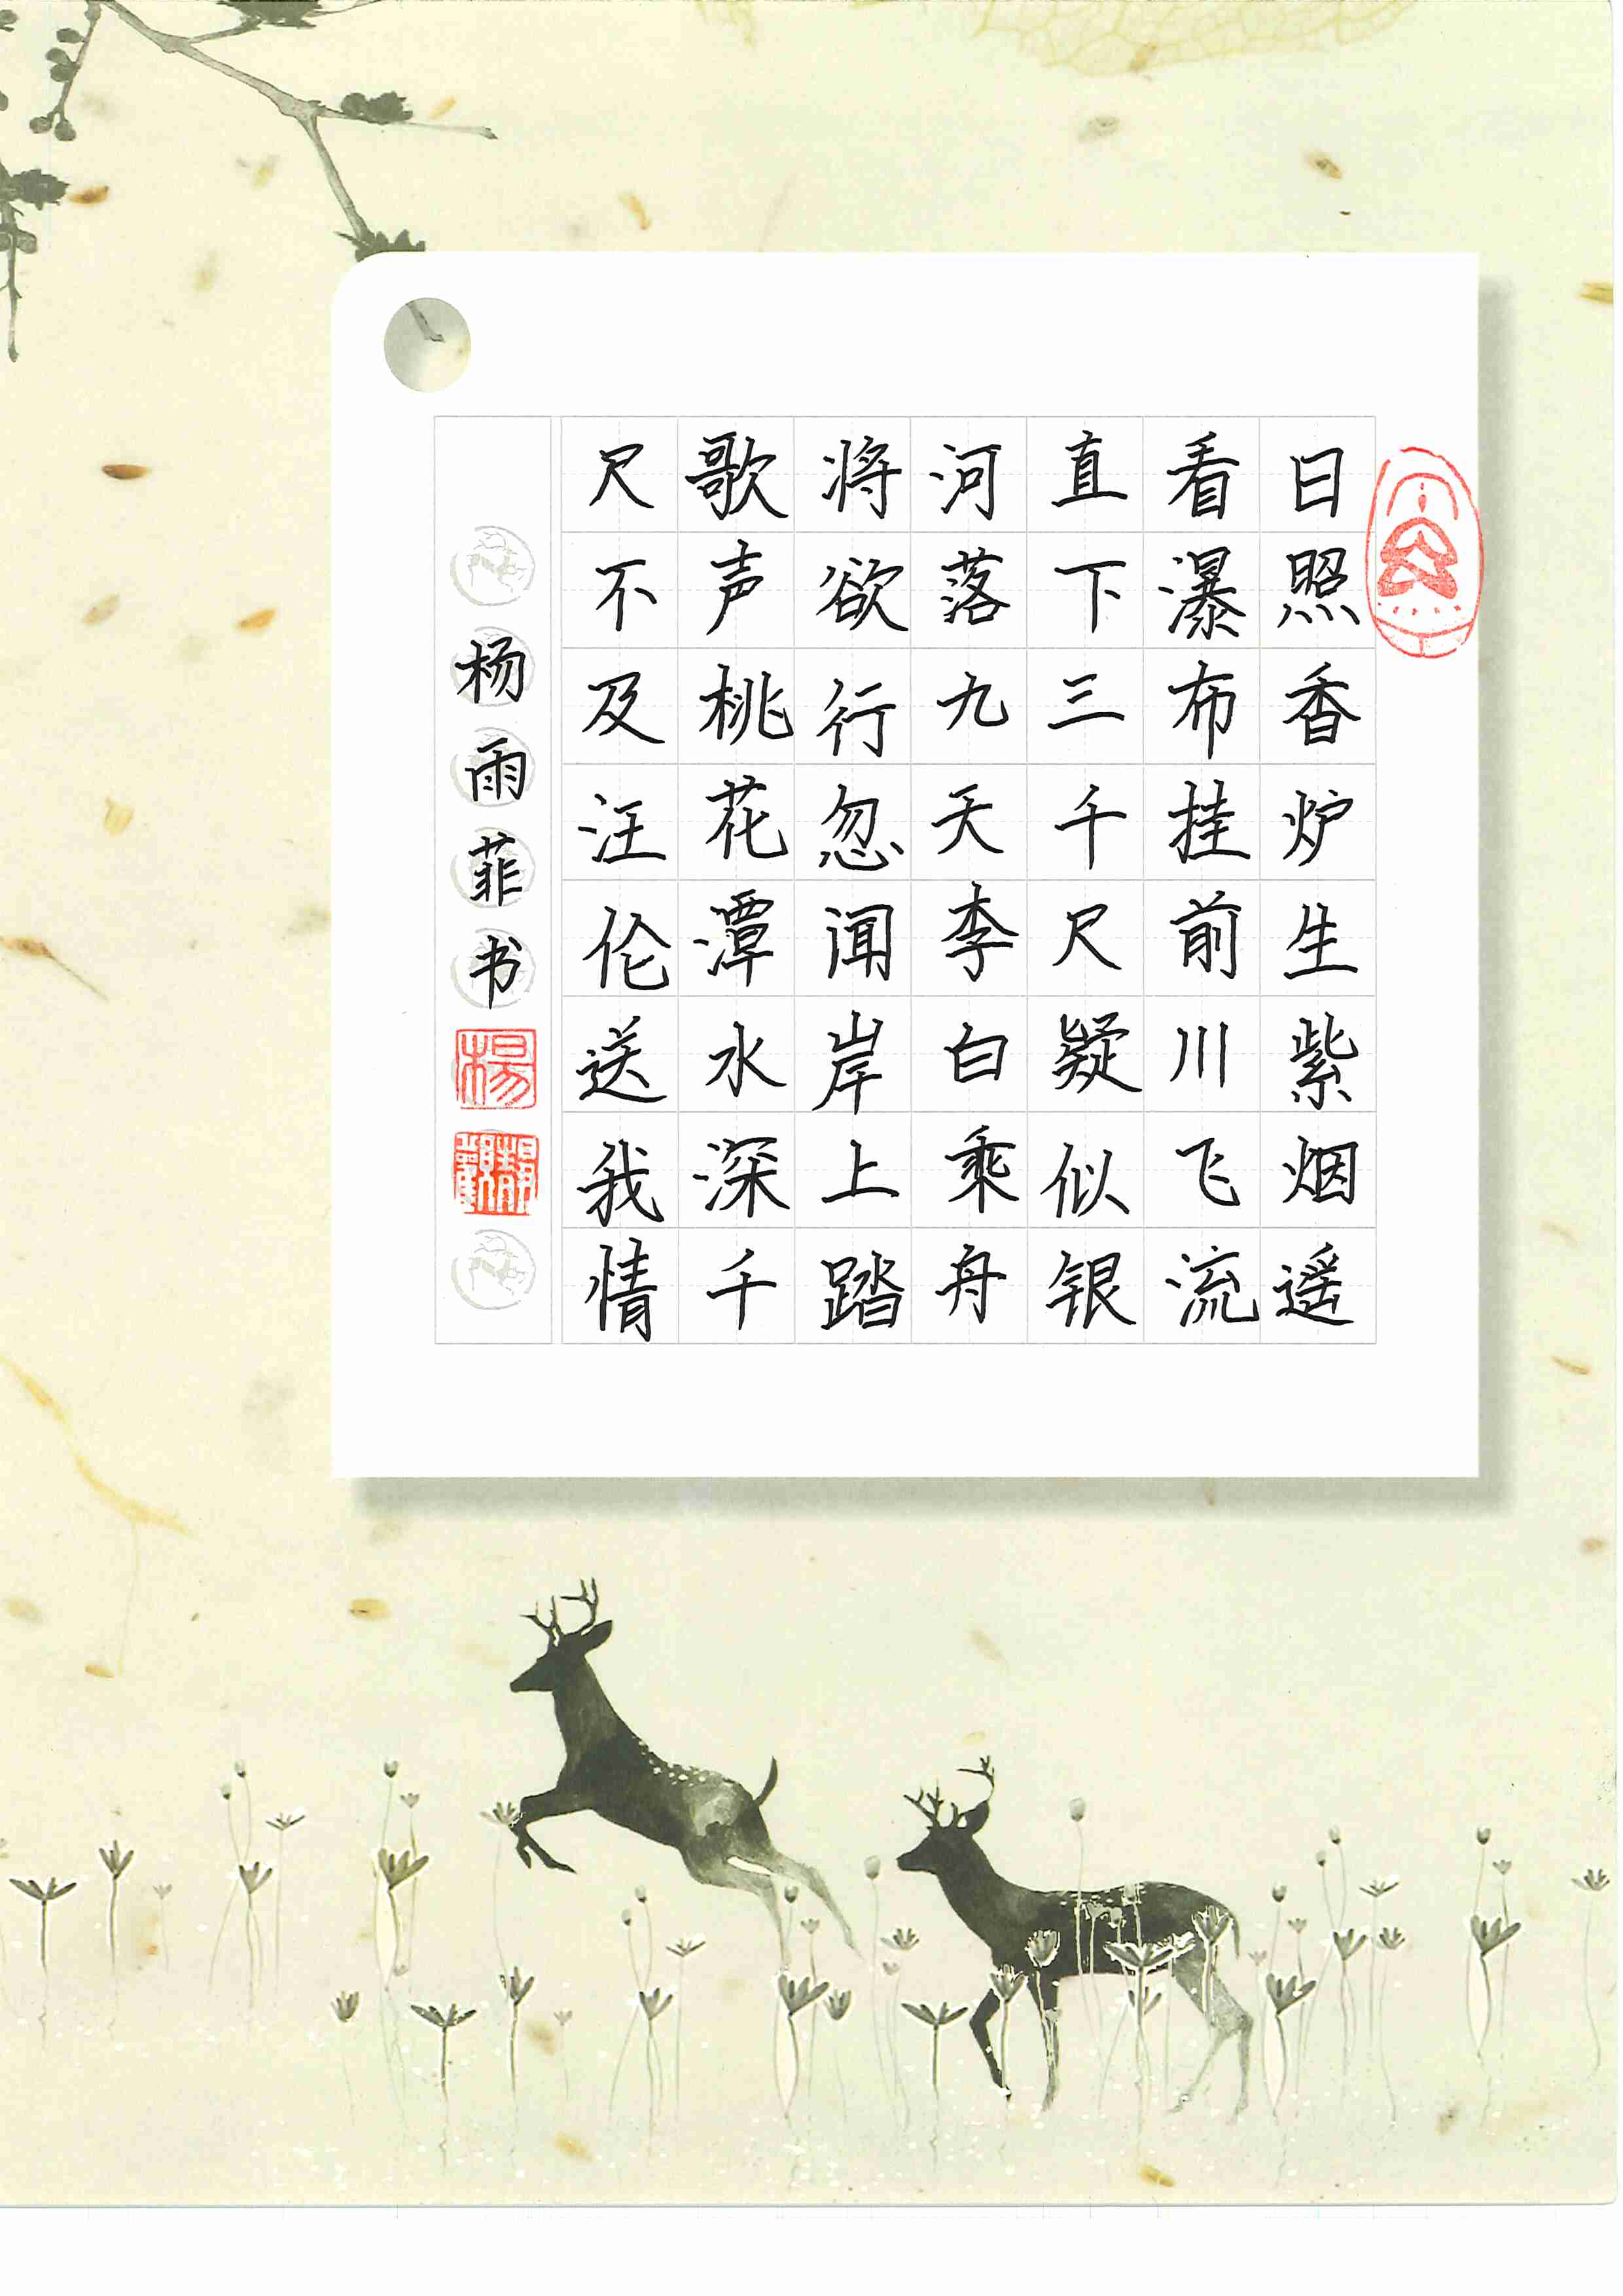 日照香炉生紫烟遥
看瀑布挂前川飞流
直下三千尺疑似银
河落九天李白乘舟
将欲行忽闻岸上踏
歌声桃花潭水深千
尺不及汪伦送我情
杨雨菲书
楊